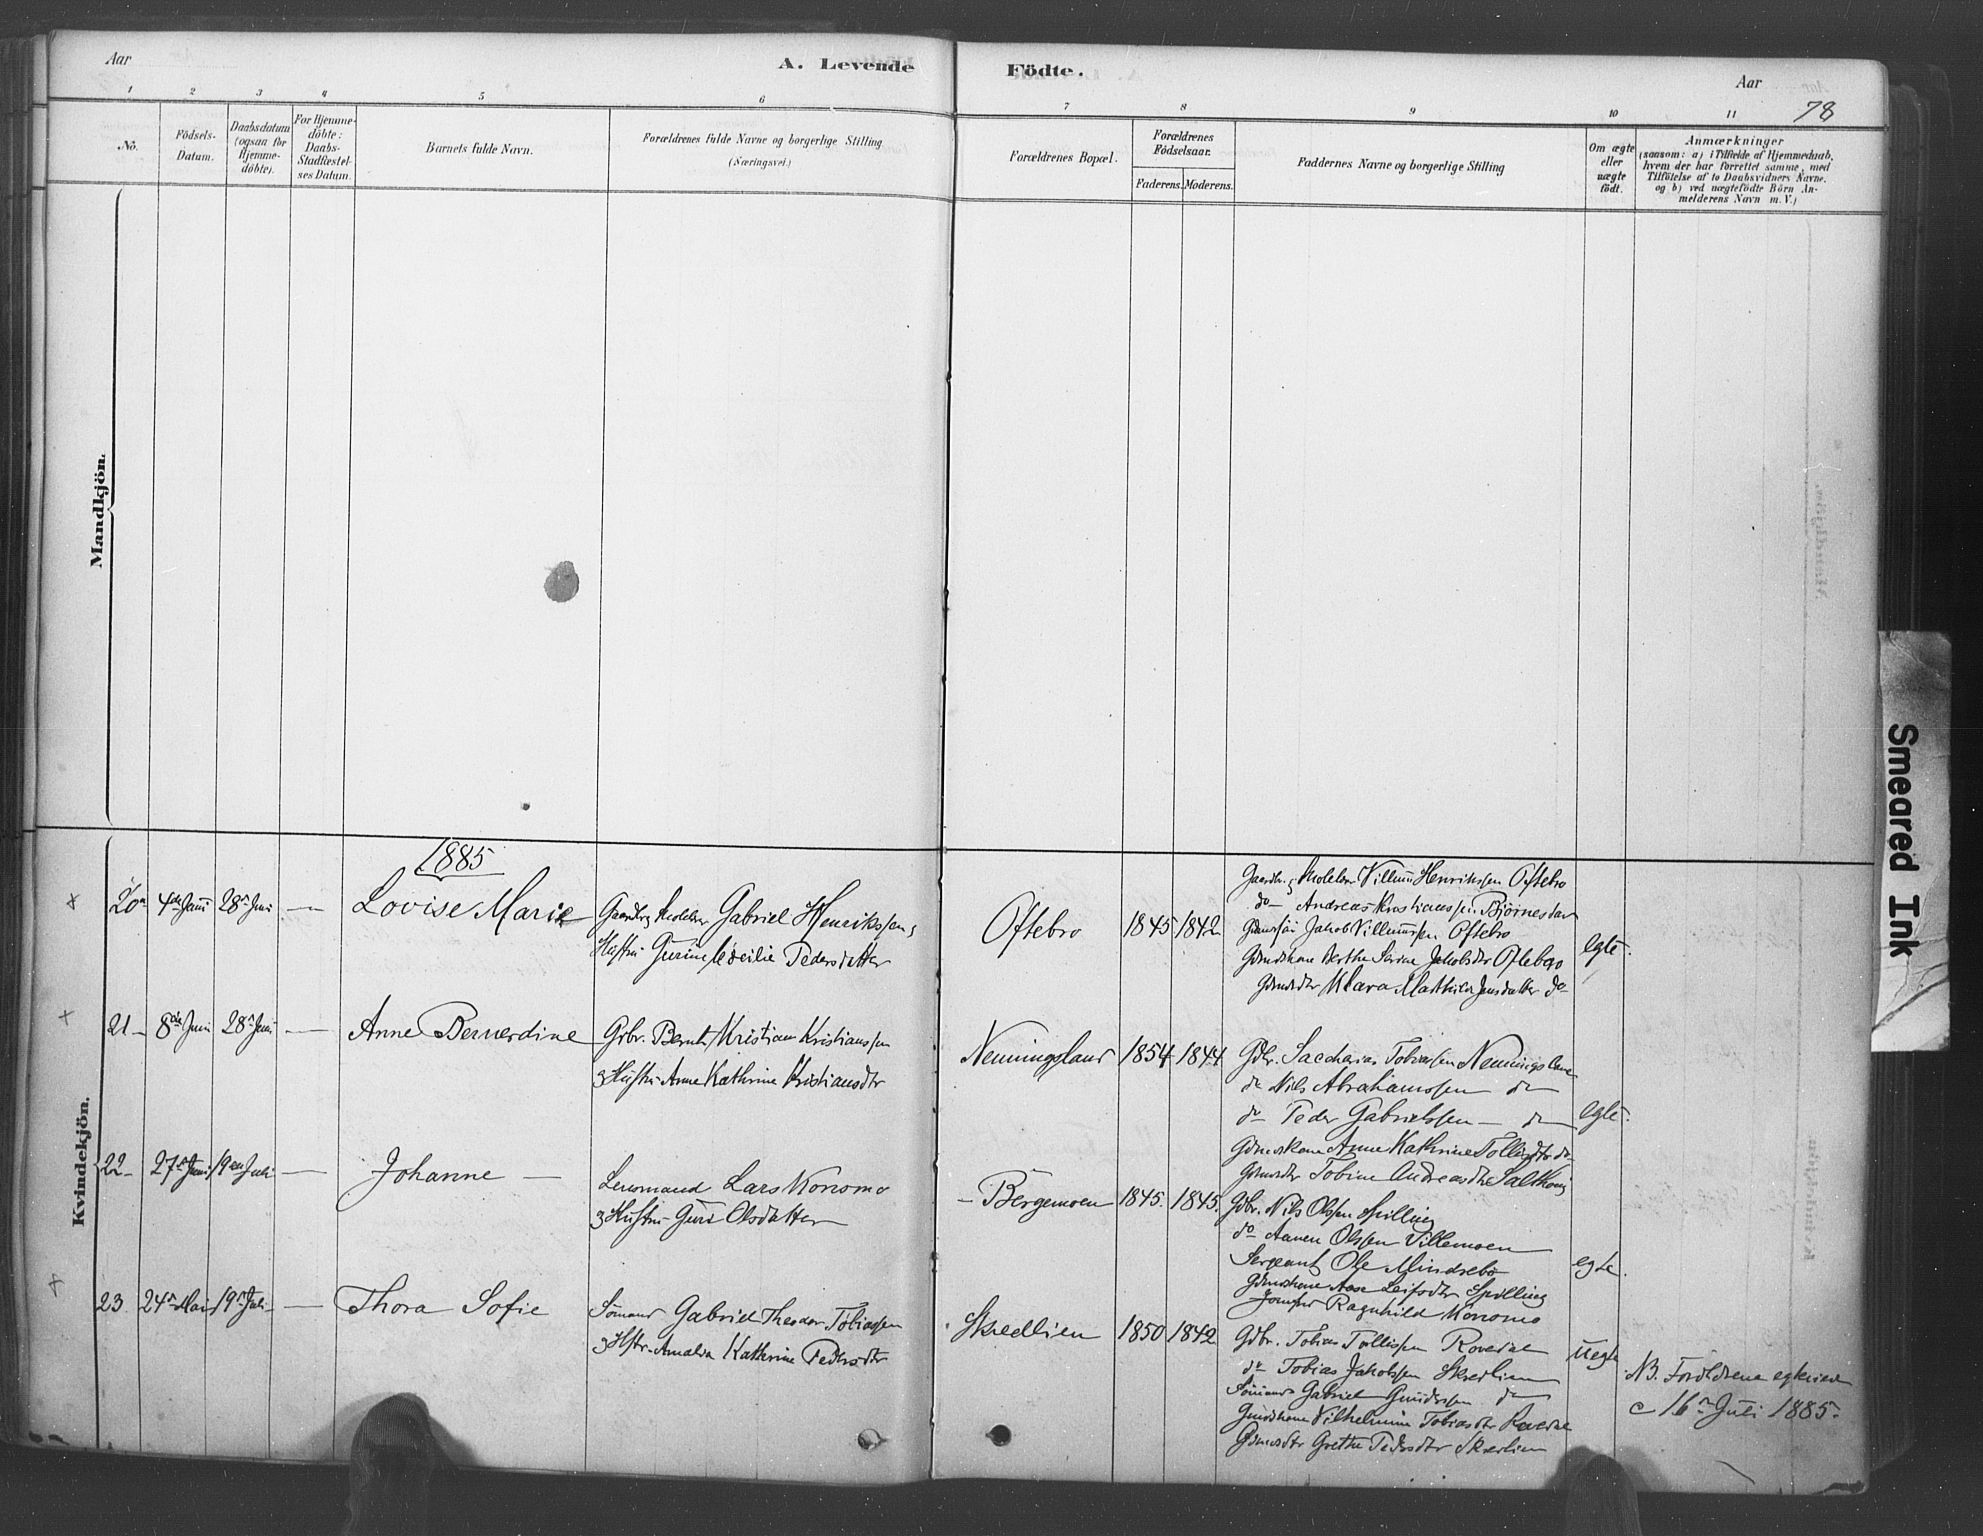 Aar
A. Levende Födte.
Aar
78
1 2 3 4 5 6 7 8 9 10 11
No.
Födsels-
Datum.
Daabsdatum
(ogsaa for
Hjemme-
döbte).
For Hjemme-
döbte:
Daabs-
Stadfæstel-
ses Datum.
Barnets fulde Navn.
Forældrenes fulde Navne og borgerlige Stilling
(Næringsvei.)
Forældrenes Bopæl.
Forældrenes
Födselsaar.
Faderens. Moderens.
Faddernes Navne og borgerlige Stilling
Om ægte
eller
uægte
födt.
Anmærkninger
(saasom: a) i Tilfælde af Hjemmedaab,
hvem der har forrettet samme, med
Tilföielse af to Daabsvidners Navne.
og b) ved uægtefödte Börn An-
melderens Navn m. V.)
Mandkjön.
Kvindekjön.
1885
20 4de Juni 28 Juni — Lovise Marie
Gabriel Henrikssen
Hustru Gurine Cecilie Pedersdatter
Oftebro 1845 1842
Villum Henrikssen Oftebro
do Andreas Kristianssen Bjørnestad
Jakob Villumssen Oftebro
Gdmdskone Berthe Serine Jakobsdtr Oftebro
Gdmdsdtr Klara Mathilde Jensdatter do
egte.
21 — 8de Juni 28 Juni — Anne Bernerdine
Grbr. Bernt Kristian Kristianssen
& Hustru Anne Kathrine Kristiansdtr
Nenningsland 1854 1844
Gdbr. Saccharias Tobiassen Nenningsland
do Nils Abrahamssen do
do Peder Gabrielssen — do
Gdmdskone Anne Kathrine Tollisdtr do
Gdmdsdtr Tobine Andreasdtr
egte.
22 — 27 Juni 19 Juli — Johanne —
Lensmand Lars Konsmo
& Hustru Guri Olsdatter
— Bergemoen 1845. 1845.
Gdbr. Nils Olssen Spilling
do Aanen Olssen Villemoen
Sergeant Ole Mindrebø
Gdmdskone Aase Leifsdtr Spilling
Jomfru Ragnhild Konsmo
egte.
23 24 Mai 19 Juli — Thora Sofie
Sømand Gabriel Theodor Tobiassen
& Hstr. Amalia Kathrine Pedersdtr
Skredlien 1850 1842
Gdbr. Tobias Tollissen
do Tobias Jakobssen Skredlien
Sømand Gabriel Gundersen do
Vilhelmine Tobiasdtr
Gdmdsdtr Grethe Pedersdtr Skredlien
Uegte
NB. Forældrene egteviede
16 Juli 1885.
Smeared Ink